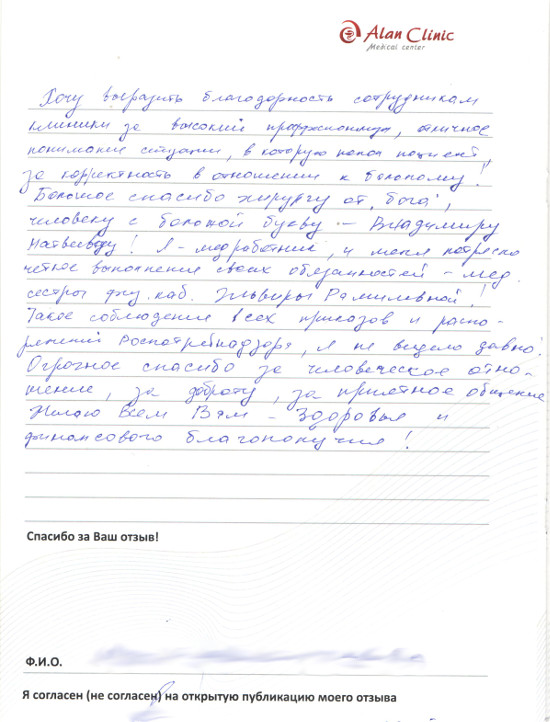 Alan Clinic
Medical center
Хочу выразить благодарность сотрудникам
клиники за высокий профессионализм, отличное
понимание ситуации, в которую попал пациент,
за корректность в отношении к больному!
Большое спасибо хирургу от "бога",
человеку с большой буквы — Владимиру
Матвеевичу! Я - медработник, и меня потрясло
четкое выполнение своих обязанностей - мед.
сестры физ. каб. Эльвиры Рамилевной!
Такое соблюдение всех приказов и распо-
ряжений Роспотребнадзора, я не видела давно!
Огромное спасибо за человеческое отно-
шение, за доброту, за приятное общение
Желаю Всем Вам - Здоровья и
финансового благополучия!
Спасибо за Ваш отзыв!
Ф.И.О.
Я согласен (не согласен) на открытую публикацию моего отзыва